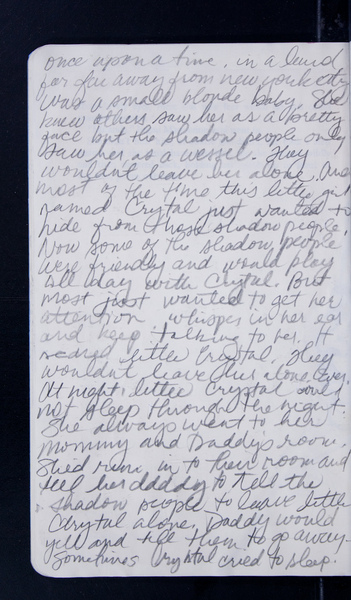 once upon a time, in a land
far far away from new york city
was a small blonde baby. She
knew others saw her as a pretty
face but the shadow people only
saw her as a vessel. They
wouldnt leave her alone. And
most of the time this little girl
named Crystal just wanted to
hide from those shadow people.
Now some of the shadow people
were friendly and would play
all day with Crystal. But
most just wanted to get her
attention whisper in her ear
and keep talking to her. It
scared little Crystal. They
wouldnt leave her alone. Ever.
At night, little Crystal could
not sleep through the night.
She always went to her
mommy and Daddys room.
Shed run in to their room and
tell her daddy to tell the
shadow people to leave little
Crystal alone. Daddy would
yell and tell them to go away.
Sometimes Crystal cried to sleep.